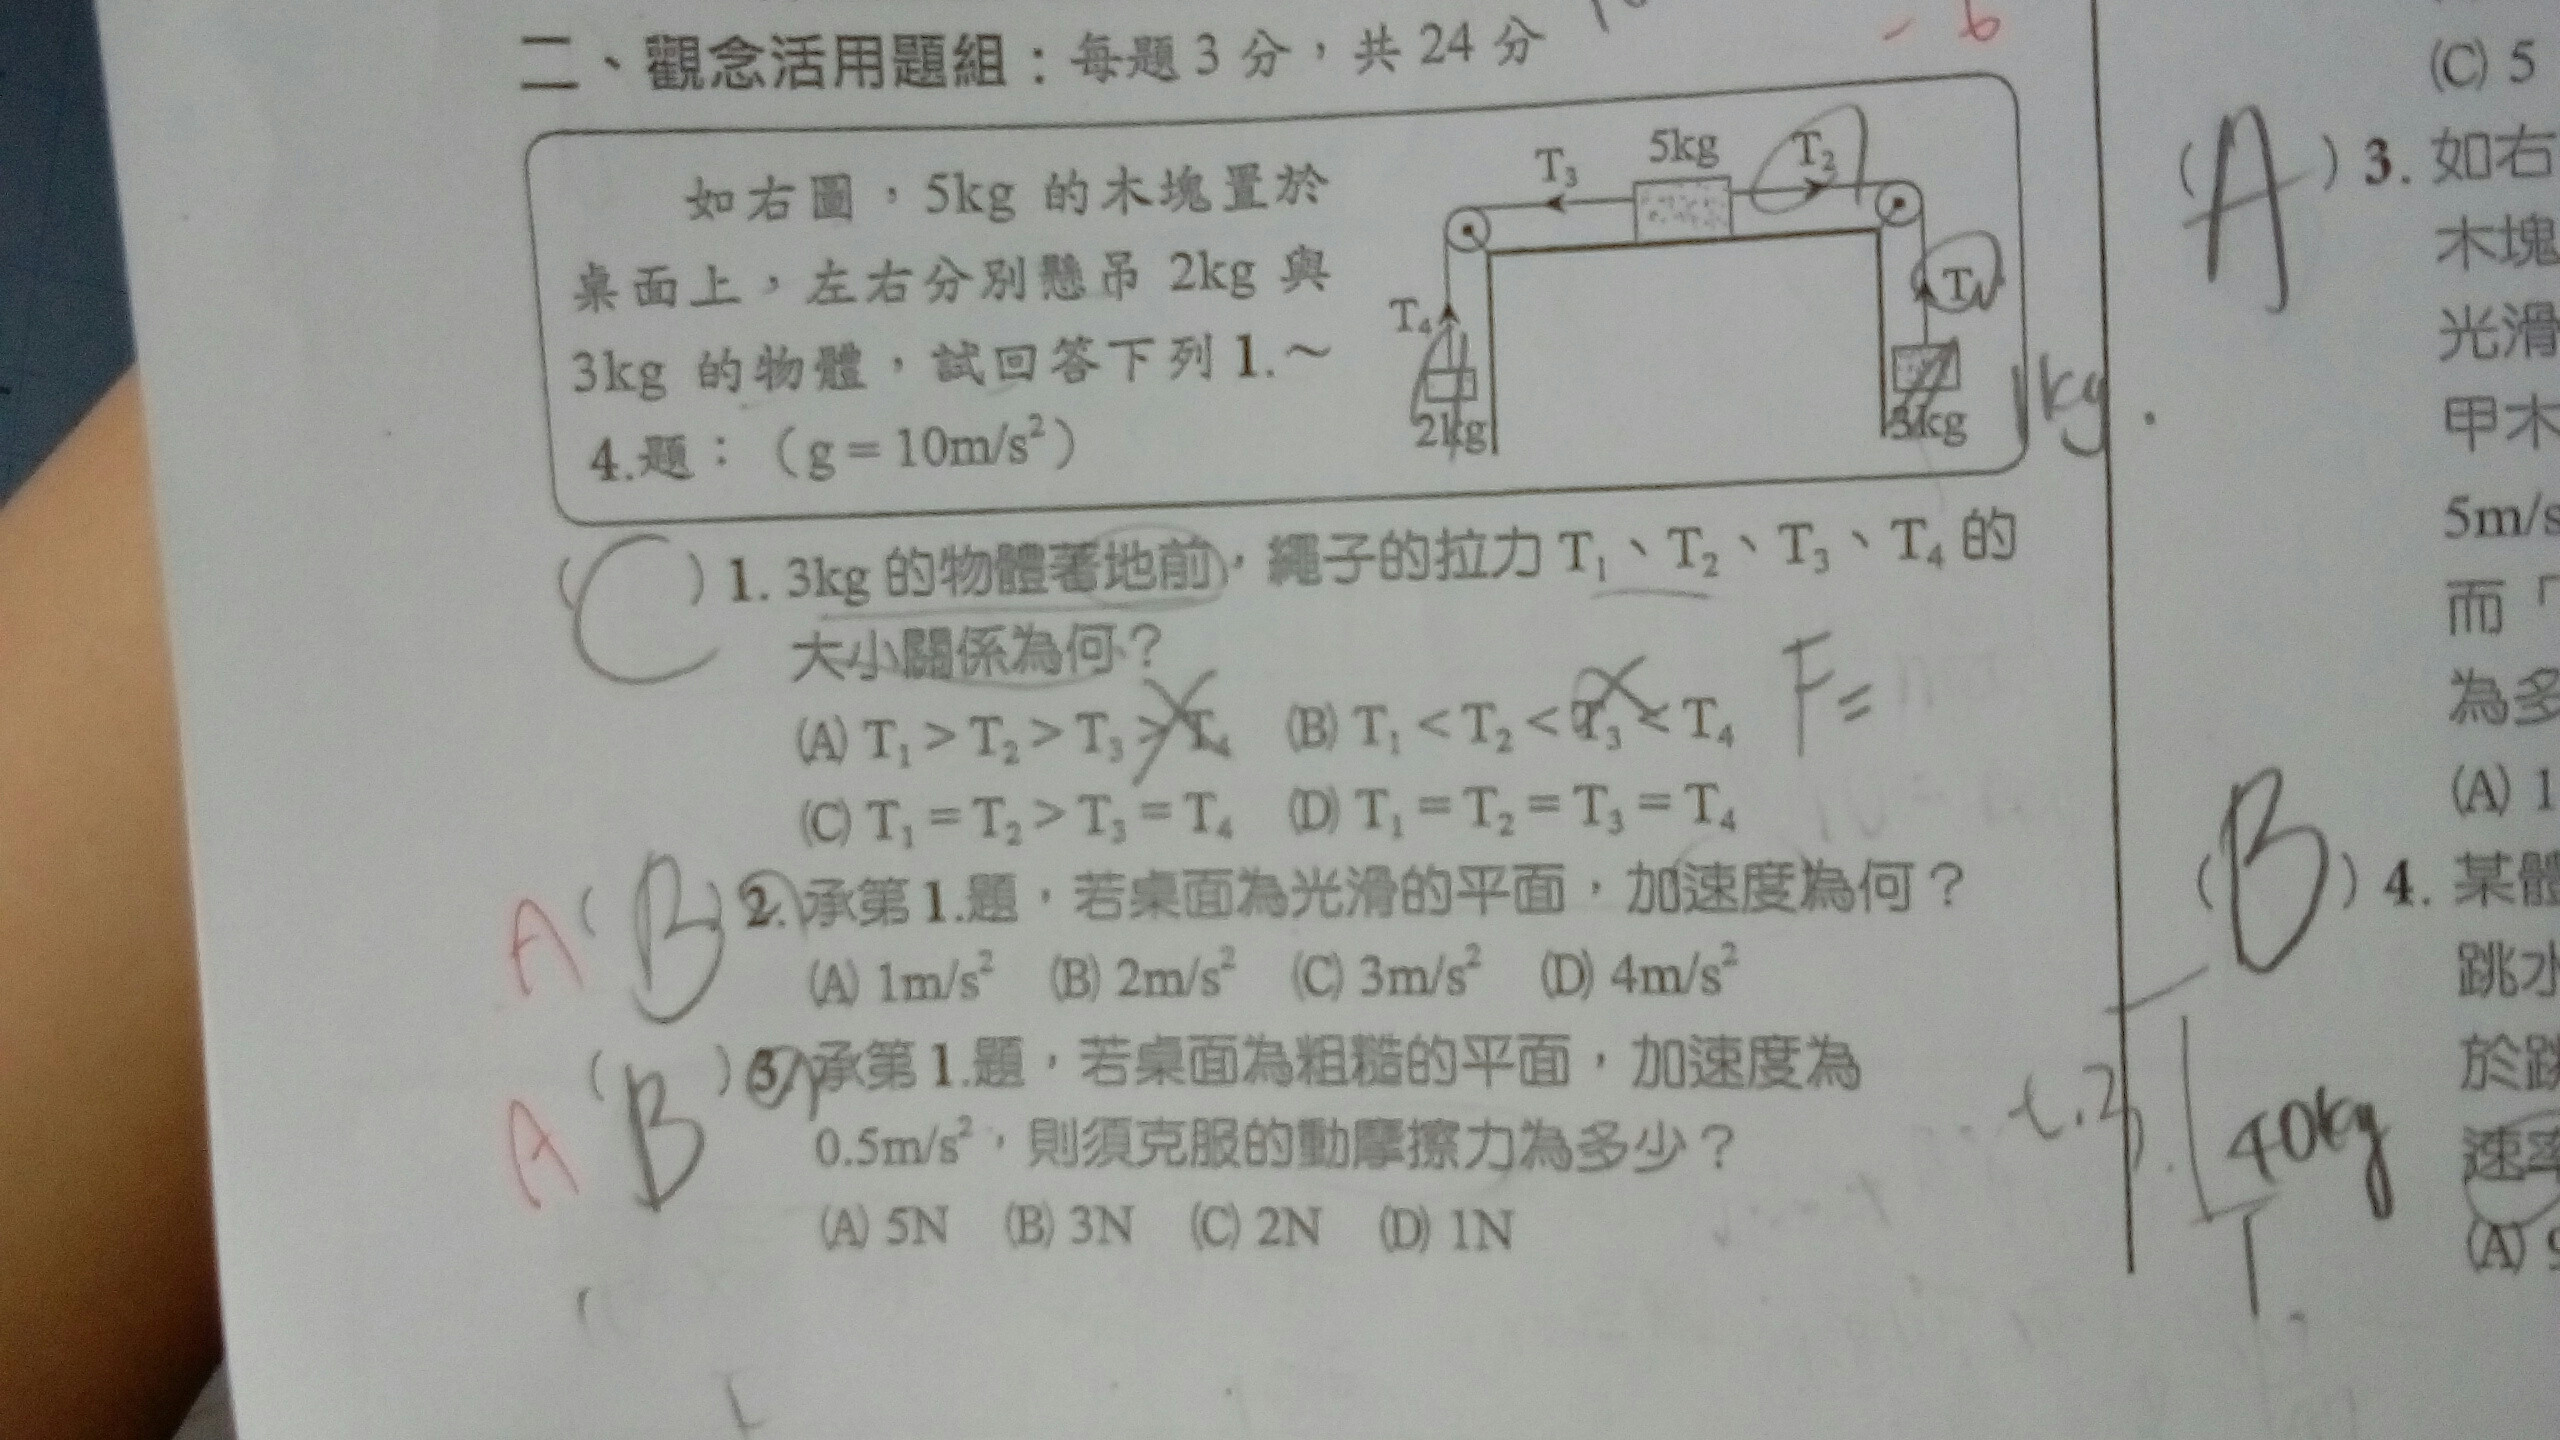 二、觀念活用題組：每題3分，共24分
- 6
如右圖，5kg 的木塊置於
桌面上，左右分別懸吊 2kg 與
3kg 的物體，試回答下列 1.～
4.題：（g＝10m/s²）
T₃
5kg
T₂
T₄
T₁
2kg
3kg
1kg.
(C) 1. 3kg 的物體著地前，繩子的拉力 T₁、T₂、T₃、T₄ 的
大小關係為何？
F=
(A) T₁＞T₂＞T₃＞T₄ (B) T₁＜T₂＜T₃＜T₄
(C) T₁＝T₂＞T₃＝T₄ (D) T₁＝T₂＝T₃＝T₄
A (B) 2. 承第1.題，若桌面為光滑的平面，加速度為何？
(A) 1m/s² (B) 2m/s² (C) 3m/s² (D) 4m/s²
A (B) 3. 承第1.題，若桌面為粗糙的平面，加速度為
0.5m/s²，則須克服的動摩擦力為多少？
(A) 5N (B) 3N (C) 2N (D) 1N
(C) 5
(A) 3. 如右
木塊
光滑
甲木
5m/s
而「
為多
(A) 1
(B) 4. 某體
跳水
於跳
速率
(A) 9
40kg